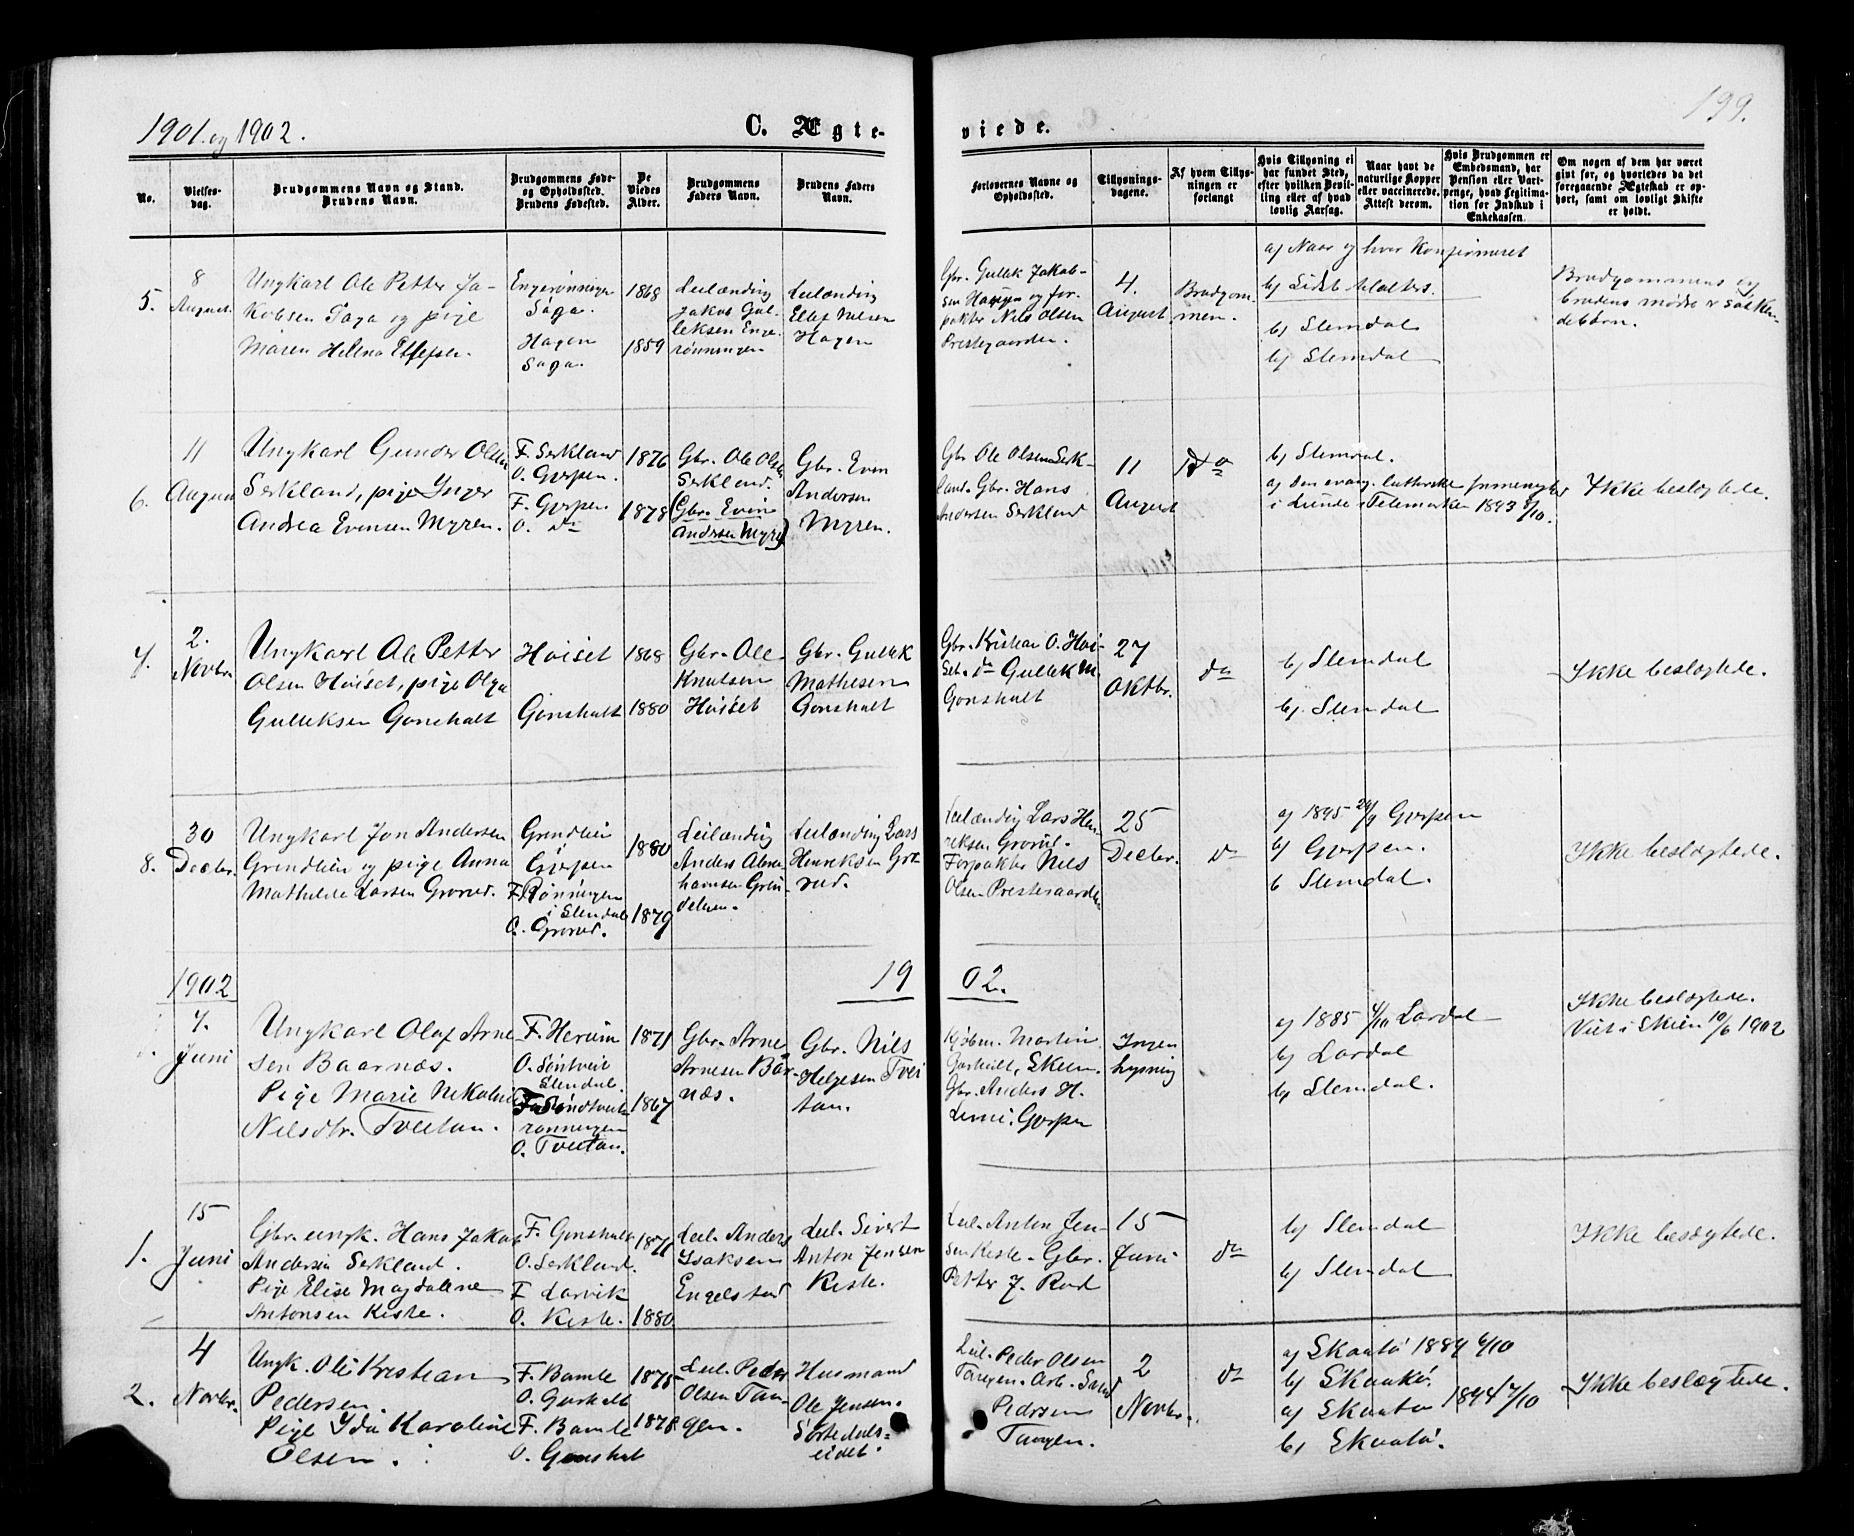 1901. og 1902.
C. Ægte-
viede.
199.
No.
Vielses-
dag.
Brudgommens Navn og Stand.
Brudens Navn.
Brudgommens Føde-
og Opholdssted.
Brudens Fødested.
De
Viedes
Alder.
Brudgommens
Faders Navn.
Brudens Faders
Navn.
Forlovernes Navne og
Opholdssted.
Tillysnings-
dagene.
Af hvem Tillys-
ningen er
forlangt
Hvis Tillysning ei
har fundet Sted,
efter hvilken Bevil-
ling eller af hvad
lovlig Aarsag.
Naar havt de
naturlige Kopper
eller vaccinerede.
Attest derom.
Hvis Brudgommen er
Embedsmand, har
Pension eller Vart-
penge, hvad Legitima-
tion for Indskud i
Enkekassen.
Om nogen af dem har været
gift før, og hvorledes da det
foregaaende Ægteskab er op-
hørt, samt om lovligt Skifte
er holdt.
5.
8
August
Ungkarl Ole Petter Ja-
kobsen Saga og pige
Maren Helena Ellefsen.
Engerønningen
Saga.
Hagen
Saga.
1868
1859
Leilænding
Jakob Gul-
leksen Enge-
rønningen
Leilænding
Ellef Nilsen
Hagen
Gbr. Gullek Jakob-
sen Hagen og for-
pakter Nils Olsen
Prestegaarden.
4.
August
Brudgom-
men.
a) Naar og hvor Konfirmeret
b) Sidst
b) Slemdal
b) Slemdal
Brudgommens og
brudens mødre er Søsken-
debørn.
6.
11
August
Ungkarl Gunder Olsen
Serkland, pige Inger
Andrea Evensen Myren.
F. Serkland
O. Gjerpen.
F. Gjerpen
O. do
1876
1878
Gbr. Ole Olsen
Serkland.
(Gbr. Even
Andersen Myren)
Gbr. Even
Andersen
Myren.
Gbr Ole Olsen Serk-
land. Gbr. Hans
Andersen Serkland
11
August
do
b) Slemdal.
a) den evang. lutherske frimenighed
i Lunde i Telemarken 1893 8/10.
Ikke beslægtede.
7.
2.
Novbr
Ungkarl Ole Petter
Olsen Høiset, pige Olga
Gulleksen Gonsholt
Høiset
Gonsholt
1868
1880
Gbr. Ole
Knutsen
Høiset
Gbr. Gullek
Mathesen
Gonsholt
Gbr. Kristian O. Høi-
set. do Gullek M.
Gonsholt
27
Oktbr.
do
b) Slemdal
b) Slemdal
Ikke beslægtede.
8.
30
Decbr.
Ungkarl Jon Andersen
Grendlien og pige Anna
Mathilde Larsen Grorud.
Grendlien
Gjerpen
F. Rønningen
i Slemdal
O. Grorud.
1880
1879
Leilænding
Anders Abra-
hamsen Gren-
delien.
Leilænding Lars
Henriksen Gro-
rud.
Leilænding Lars Hen-
riksen Grorud.
Forpakter Nils
Olsen Prestegaarden
25
Decbr.
do
a) 1895 29/9 Gjerpen
b) Gjerpen.
b Slemdal.
Ikke beslægtede.
1902
19
02.
7.
Juni
Ungkarl Olaf Arne-
sen Baarnæs.
Pige Marie Nikoline
Nilsdtr. Tveitan.
F. Herum
O. Søntveit
Slemdal.
F. Søndtveit-
rønningen
O. Tveitan.
1871
1867
Gbr. Arne
Arnesen Bår-
næs.
Gbr. Nils
Helgesen Tvei-
tan.
Kjøbm. Martin
Gorholt, Skien.
Gbr. Anders H.
Limi. Gjerpen
Ingen
Lysning
a) 1885 4/10 Lardal
b) Lardal
b) Slemdal.
Ikke beslægtede.
Viet i Skien 10/6 1902
1.
15
Juni
Gbr. ungk. Hans Jakob
Andersen Serkland.
Pige Elise Magdalene
Antonsen Kiste.
F. Gonsholt
O. Serkland.
F Larvik
O. Kiste.
1871
1880
Leil. Anders
Isaksen
Engelstad
Leil. Sivert
Anton Jensen
Kiste.
Leil. Anton Jen-
sen Kiste. Gbr.
Petter J. Rød
15
Juni
do
b) Slemdal
b) Slemdal
Ikke beslægtede.
2.
4
Novbr.
Ungk. Ole Kristian
Pedersen.
Pige Ida Karoline
Olsen.
F. Bamle
O. Gorholt
F. Bamle
O. Gonsholt
1875
1878
Leil. Peder
Olsen Tan-
gen.
Husmand
Ole Jensen.
Sortedals-
eidet.
Leil. Peder Olsen
Tangen. Arb.
Pedersen
Tangen.
2
Novbr.
do
a) Skaatø 1889 6/10
b) Skaatø.
a) Skaatø 1894 7/10
b) Skaatø.
Ikke beslægtede.